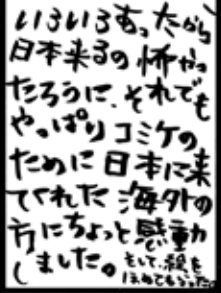 いろいろあったから
日本来るの怖かっ
たろうに、それでも
やっぱりコミケの
ために日本に来
てくれた海外の
方にちょっと感動
しました。そして、絵を
ほめてもらった。